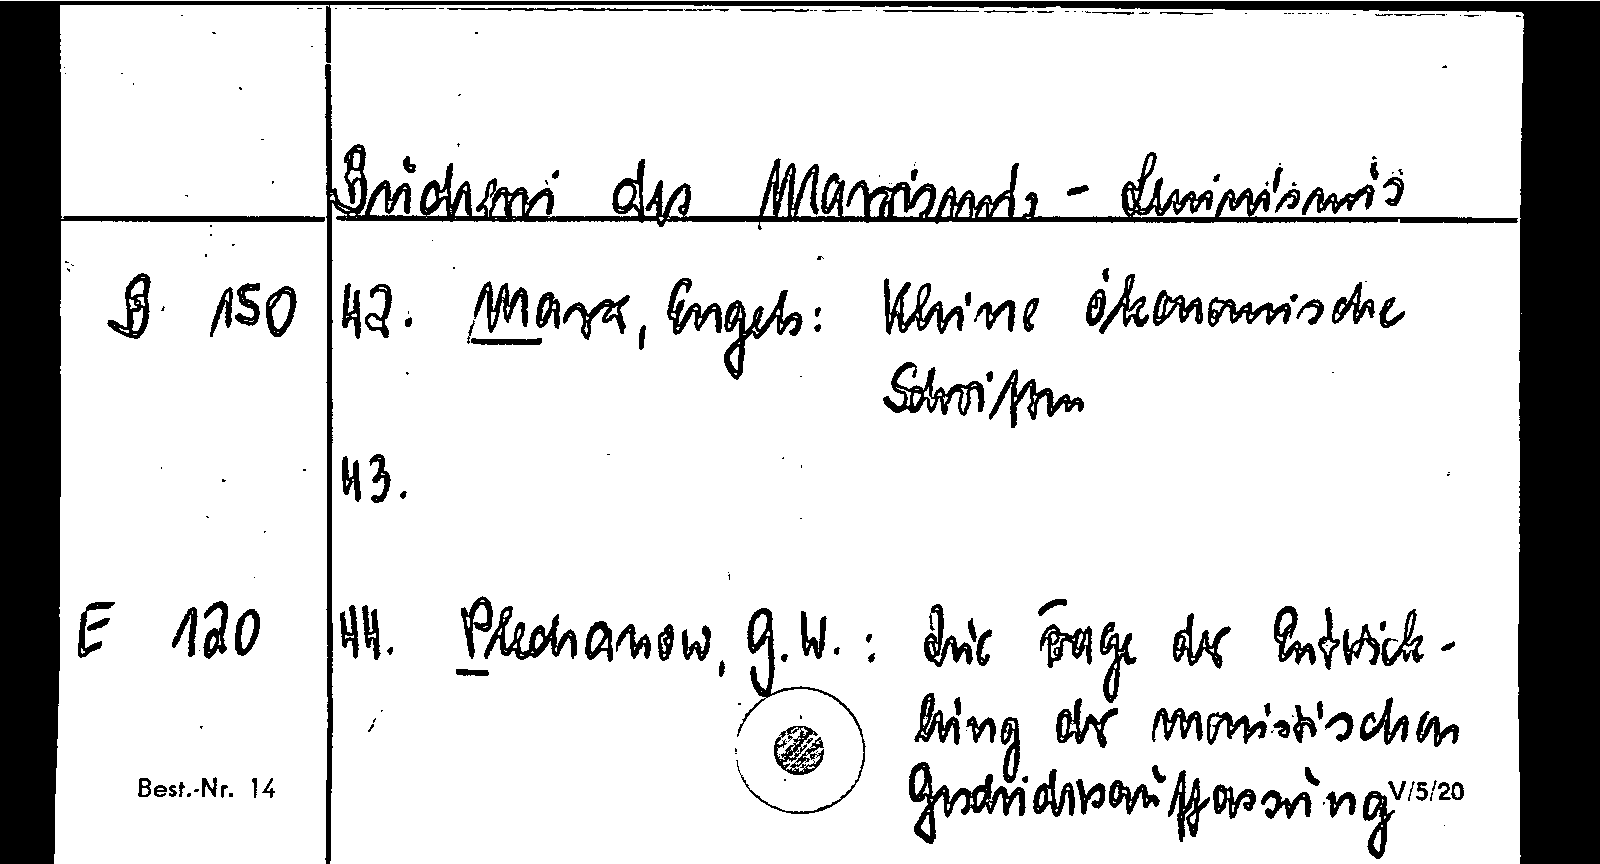 Bücherei des Marxismus - Leninismus
B 150 42. Marx, Engels: Kleine ökonomische
Schriften
43.
E 120 44. Plechanow, G.W.: Zur Frage der Entwick-
lung der monistischen
Geschichtsauffassung
Best.-Nr. 14 V/5/20